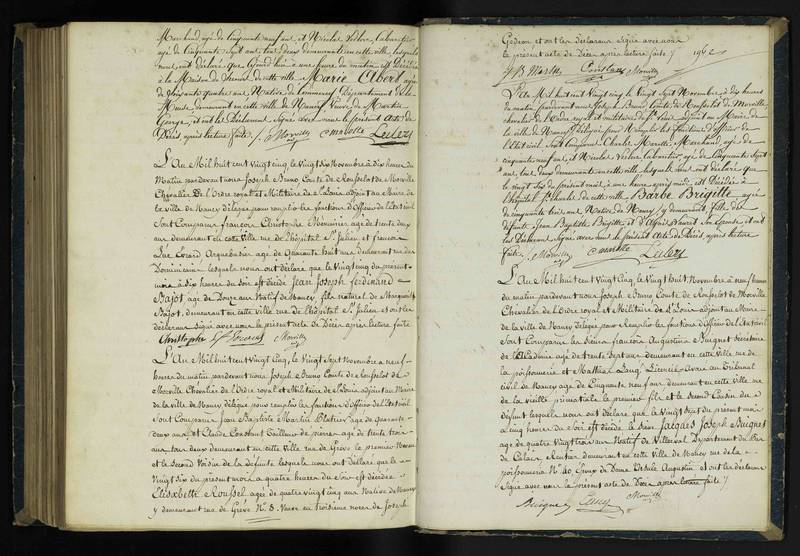 Marchand, agé de Cinquante neuf ans, et Nicolas Leclere, Cabaretier,
agé de Cinquante Sept ans, tous deux demeurants en cette ville, lesquels
nous ont déclaré que aujourd'hui à une heure du matin est Décédée
à la Maison de Secours de cette ville Marie Obert agée
de soixante quatre ans Native de Commercy Département de la
Meuse demeurant en cette ville de Nancy Veuve de Martin
George, et ont les Déclarants Signé avec nous le présent acte de
Décès après lecture faite /. Morville Marotte Leclerc
L'An Mil huit cent Vingt cinq le Vingt Six Novembre à dix heures du
Matin pardevant nous Joseph Bruno Comte de Rousselot de Morville
Chevalier de l'Ordre royal et Militaire de St Louis adjoint au Maire de
la Ville de Nancy Délégué pour remplir les fonctions d'Officier de l'Etat Civil
Sont Comparus françois Christophe Menuisier agé de trente deux
ans demeurant en cette Ville rue de l'hôpital St Julien et francois
Luc Evrard Arquebusier agé de Quarante huit ans demeurant rue des
Dominicains lesquels nous ont déclaré que le Vingt cinq du présent
mois à dix heures du Soir est décédé Jean Joseph ferdinand
Bajot agé de Douze ans Natif de Nancy, fils naturel de Marguerite
Bajot, demeurant en cette Ville rue de l'hôpital St Julien et ont les
déclarans Signé avec nous le présent acte de Décès après lecture faite
Christophe Evrard Morville
L'An Mil huit cent Vingt cinq, le Vingt Sept Novembre à neuf
heures du matin pardevant nous Joseph Bruno Comte de Rousselot de
Morville Chevalier de l'Ordre royal et Militaire de St Louis adjoint au Maire
de la ville de Nancy délégué pour remplir les fonctions d'Officier de l'Etat Civil
Sont Comparus Jean Baptiste Martin Plâtrier agé de Quarante
deux ans et Claude Constant Tailleur de pierres agé de trente trois
ans tous deux demeurant en cette Ville rue de Grève le premier Neveu
et le Second Voisin de la Défunte lesquels nous ont déclaré que le
Vingt Six du présent mois à quatre heures du Soir est décédée
Elisabeth Roussel agée de quatre vingt cinq ans Native de Nancy
y demeurant rue de Grève N.° 8. Veuve en troisième noces de Joseph
Godeon et ont les déclarans Signé avec nous
le présent acte de Décès après lecture faite /
JB Martin Constant Morville
L'An Mil huit cent vingt cinq le Vingt Sept Novembre, à dix heures
du matin pardevant nous Joseph Bruno Comte de Rousselot de Morville,
chevalier de l'Ordre royal et militaire de St Louis adjoint au Maire de
la ville de Nancy Délégué pour Remplir les fonctions d'officier de
l'Etat civil Sont Comparus Charles Marotte, Marchand, agé de
cinquante neuf ans, et Nicolas Leclere cabaretier, agé de Cinquante Sept
ans, tous deux demeurants en cette ville, lesquels nous ont déclaré que
le vingt Six du présent mois, à une heure après midi est Décédée à
l'hôpital St Charles de cette ville Barbe Brigitte agée
de cinquante trois ans Native de Nancy, y demeurant fille des
défunts Jean Baptiste Brigitte et d'Agnès Bauret Son épouse, et ont
les Déclarans Signé avec nous le présent acte de Décès après lecture
faite /. Morville Marotte Leclerc
L'An Mil huit cent Vingt Cinq, le Vingt huit Novembre à neuf heures
du matin pardevant nous Joseph Bruno Comte de Rousselot de Morville
Chevalier de l'Ordre royal et Militaire de St Louis adjoint au Maire
de la ville de Nancy délégué pour Remplir les fonctions d'Officier de l'Etat civil
Sont Comparus les Sieurs françois Augustin Buignet Secrétaire
de l'Académie agé de trente Sept ans demeurant en cette Ville rue de
la poissonnerie et Mathieu Licencié Avoué au Tribunal
civil de Nancy agé de Cinquante neuf ans demeurant en cette Ville rue
de la vieille primatiale le premier fils et le Second Cousin du
défunt lesquels nous ont déclaré que le Vingt Sept du présent mois
à Cinq heures du Soir est décédé le Sieur Jacques Joseph Buignet
agé de quatre Vingt trois ans Natif de Département du Pas
de Calais Rentier demeurant en cette Ville de Nancy rue de la
poissonnerie N.° 40 Epoux de Dame Ursule Augustin et ont les déclarans
Signé avec nous le présent acte de Décès après lecture faite /
Buignet Morville